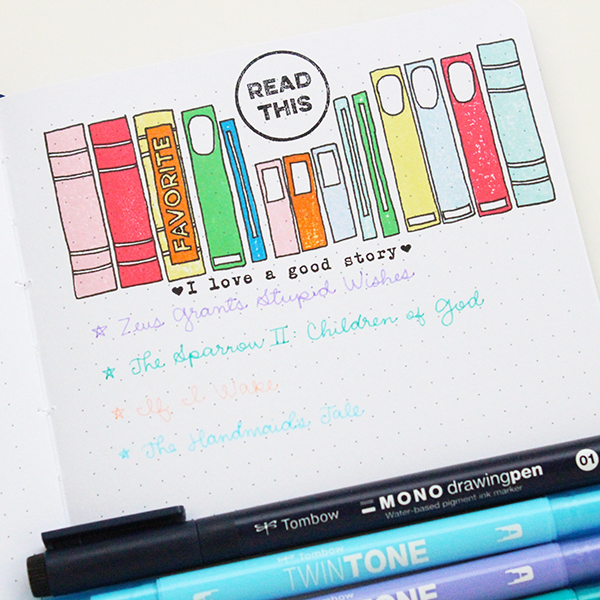 READ
THIS
FAVORITE
♥I love a good story♥
☆ Zeus Grants Stupid Wishes
☆ The Sparrow II: Children of God
☆ If I Wake
☆ The Handmaid's Tale
Tombow MONO drawingpen 01
Water-based pigment ink marker
Tombow
TWINTONE
Tombow
TWINTONE